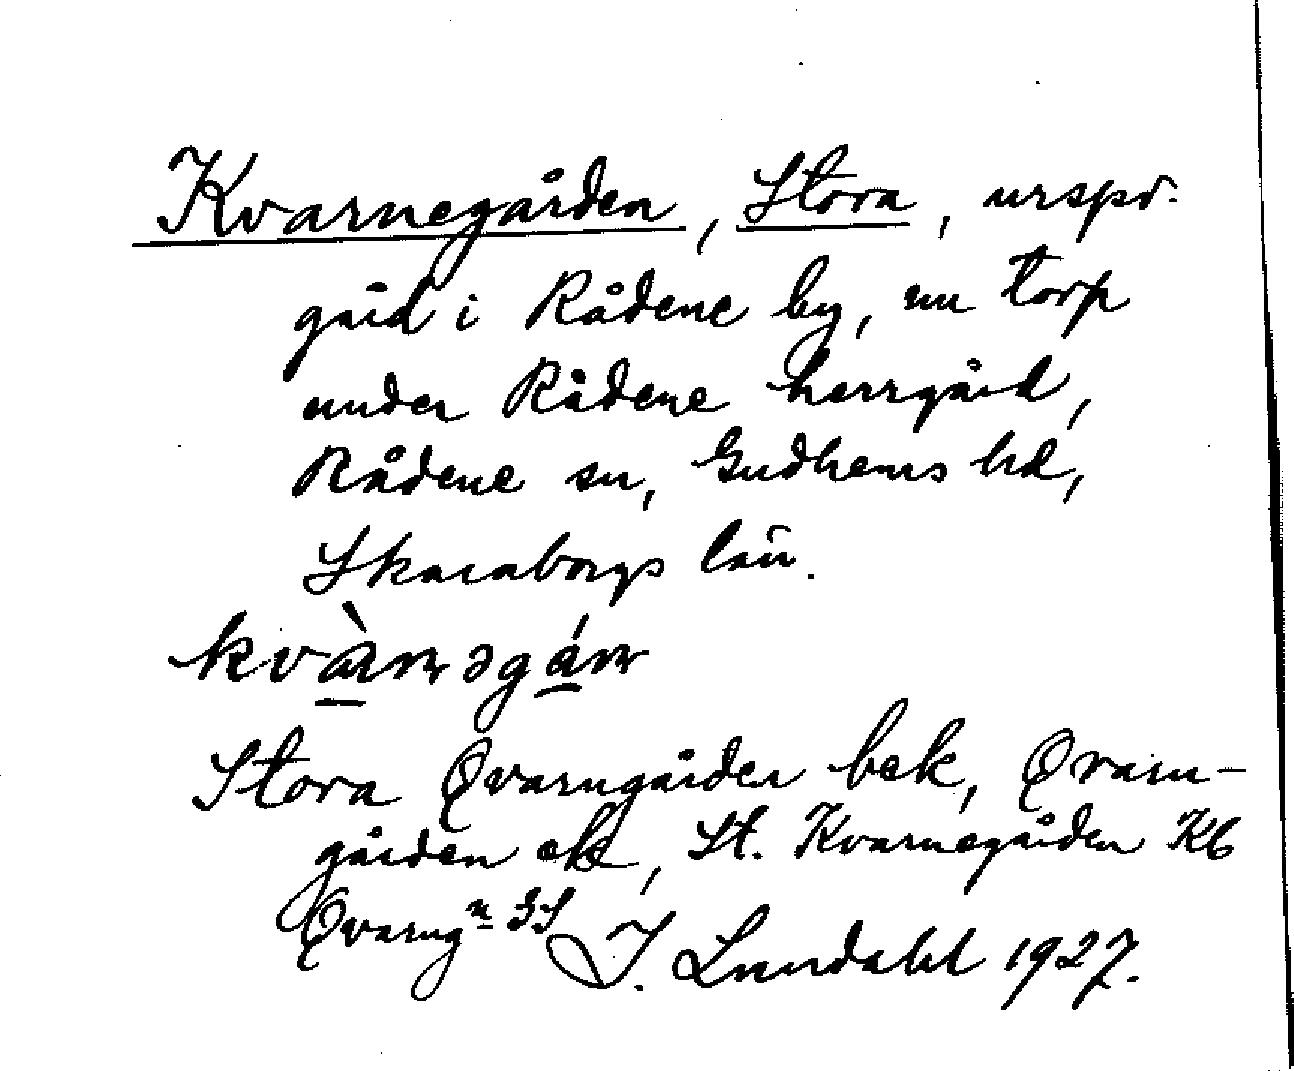 Kvarnegården, Stora, urspr.
gård i Rådene by, nu torp
under Rådene herrgård,
Rådene sn, Gudhems hd,
Skaraborgs län.
kvàrnəgárn
Stora Qvarngården bek, Qvarn-
gården ek, St. Kvarnegården Kb
Qvarngn GS
I. Lundahl 1927.